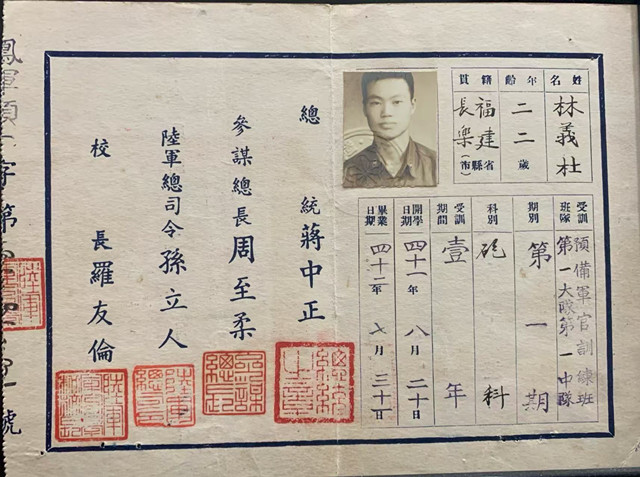 姓名 林義杜
年齡 二二歲
籍貫 福建省長樂縣(市)
受訓班隊 預備軍官訓練班第一大隊第一中隊
期別 第一期
科別 砲科
受訓期間 壹年
開學日期 四十一年八月二十日
畢業日期 四十二年七月三十日
總統蔣中正
參謀總長周至柔
陸軍總司令孫立人
校長羅友倫
字第
號